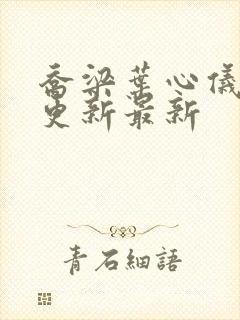 喬梁葉心儀
更新最新
青石細語